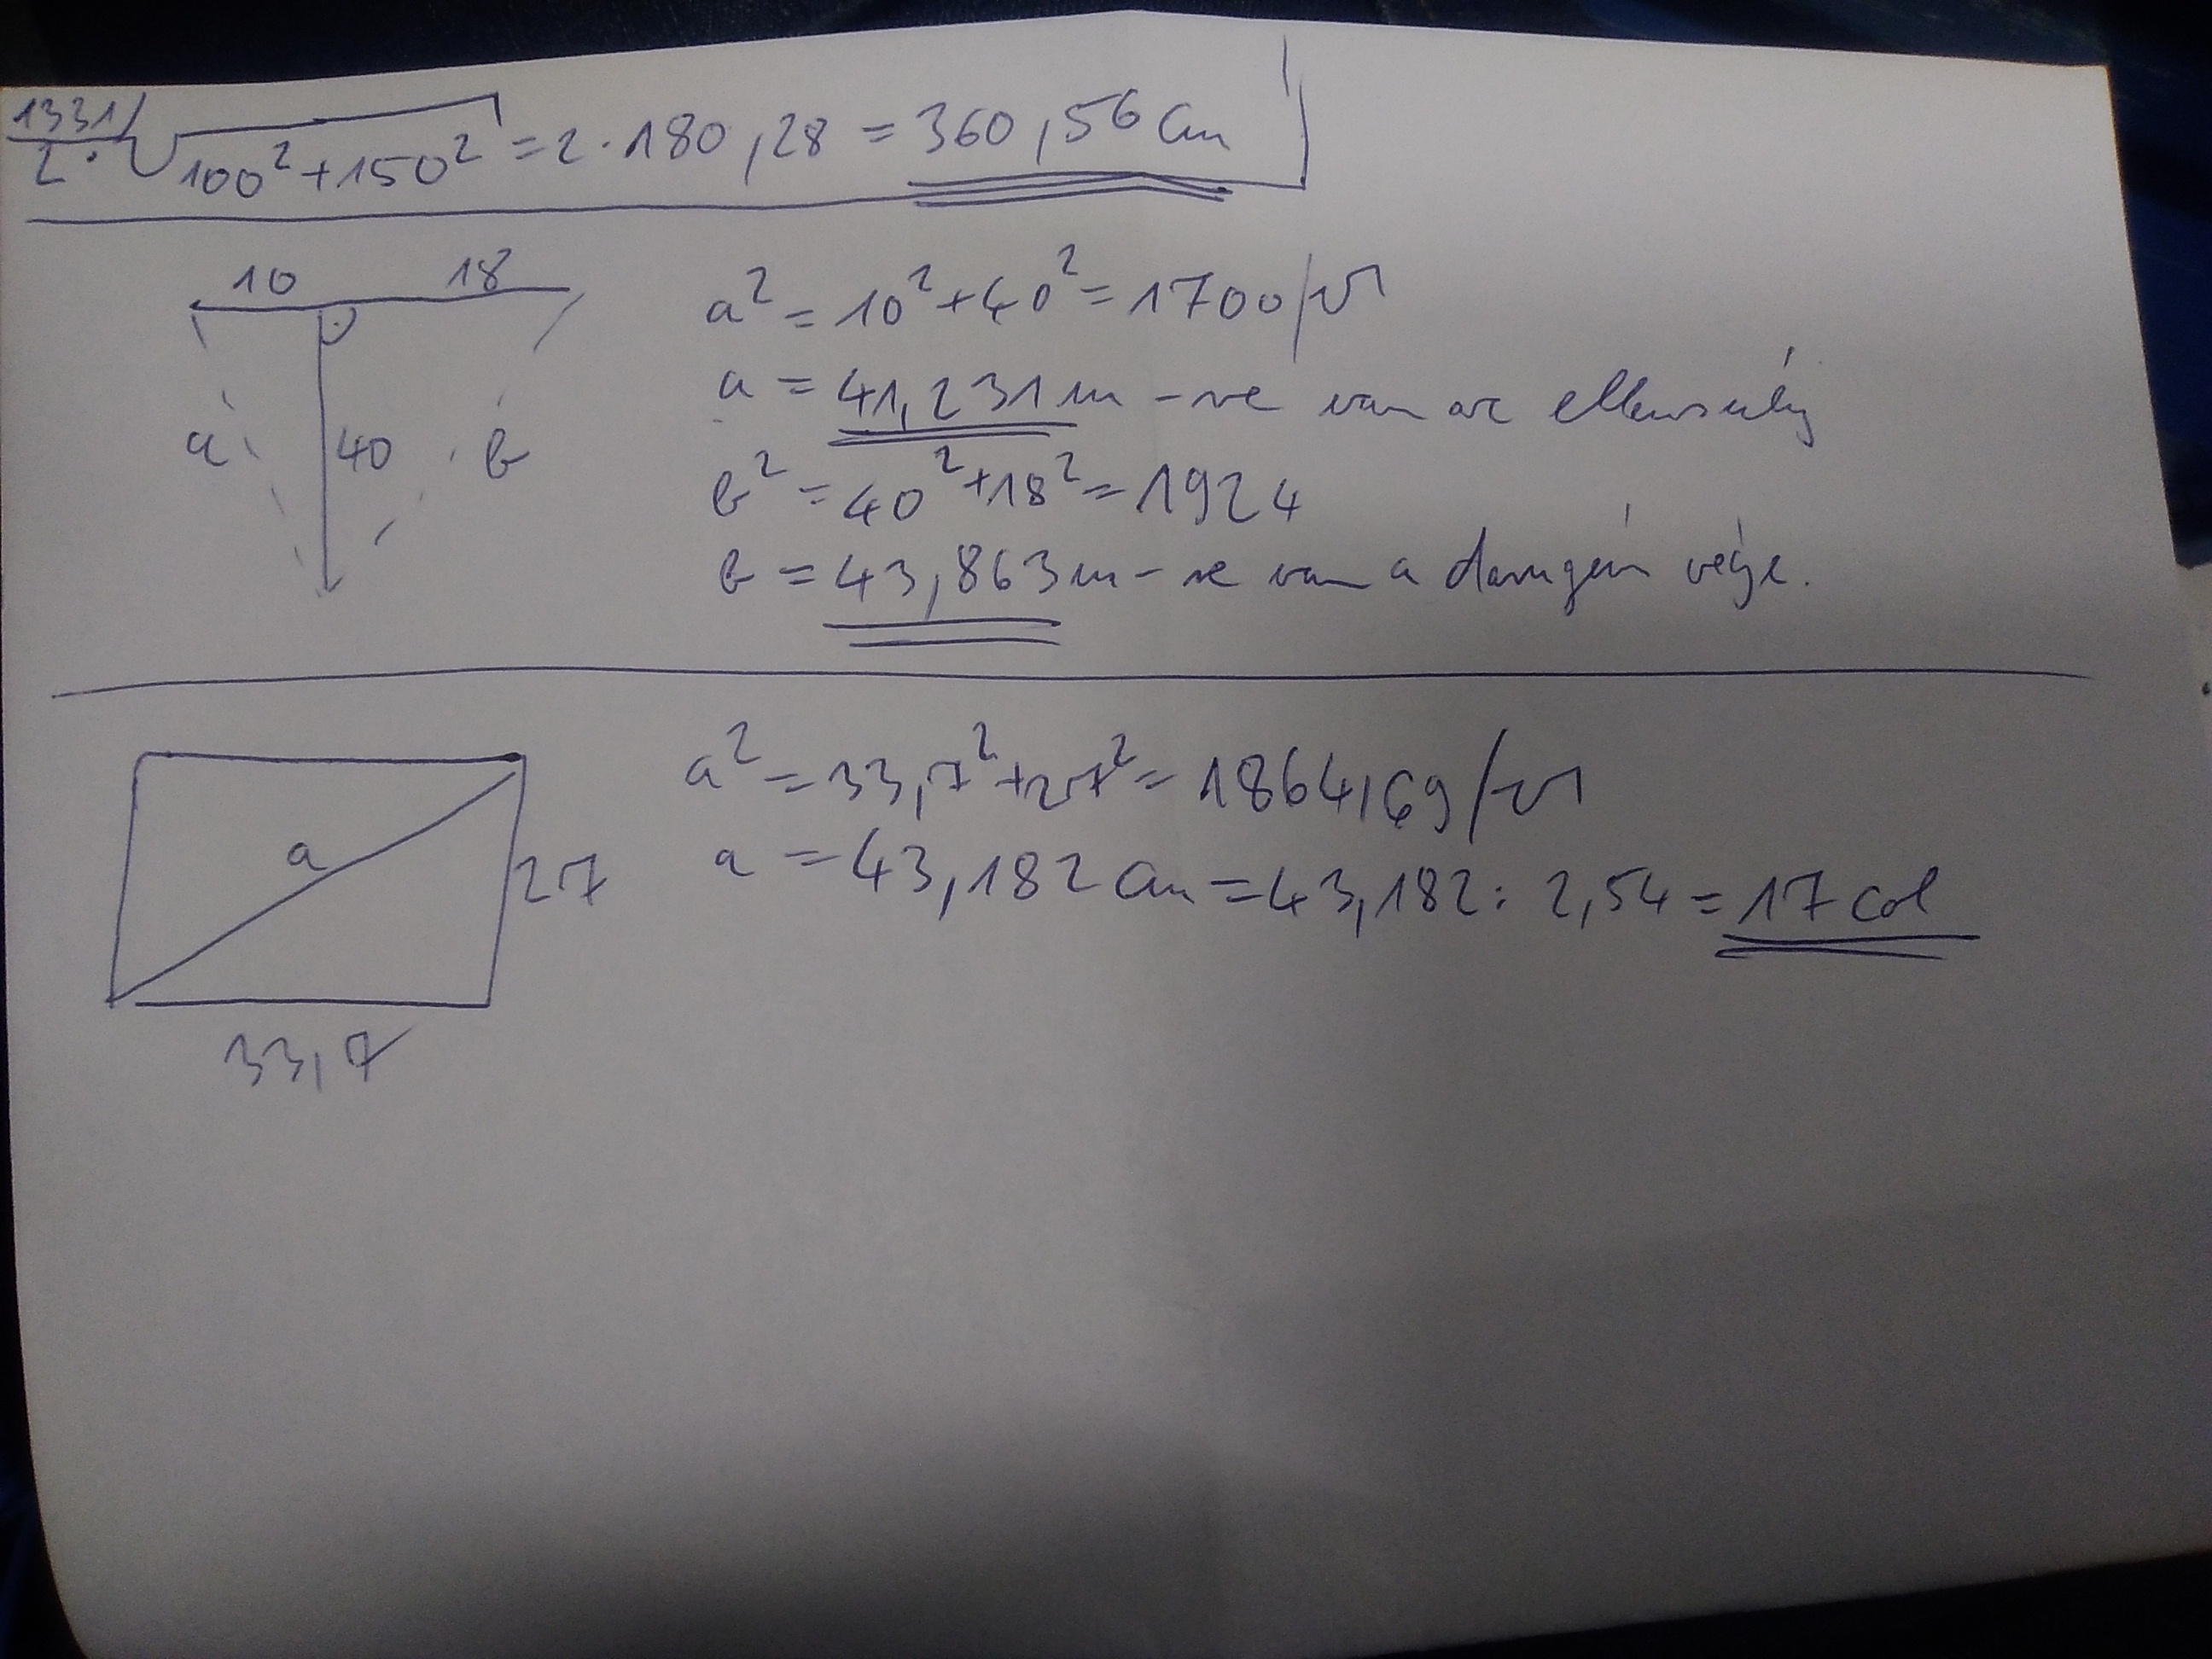 1331/
2·√100²+150² = 2·180,28 = 360,56 cm
10 18
a 40 b
a² = 10²+40² = 1700 /√
a = 41,231 m-re van az ellensúly
b² = 40²+18² = 1924
b = 43,863 m-re van a darugém vége.
a 27
33,7
a² = 33,7²+27² = 1864,69 /√
a = 43,182 cm = 43,182 : 2,54 = 17 col